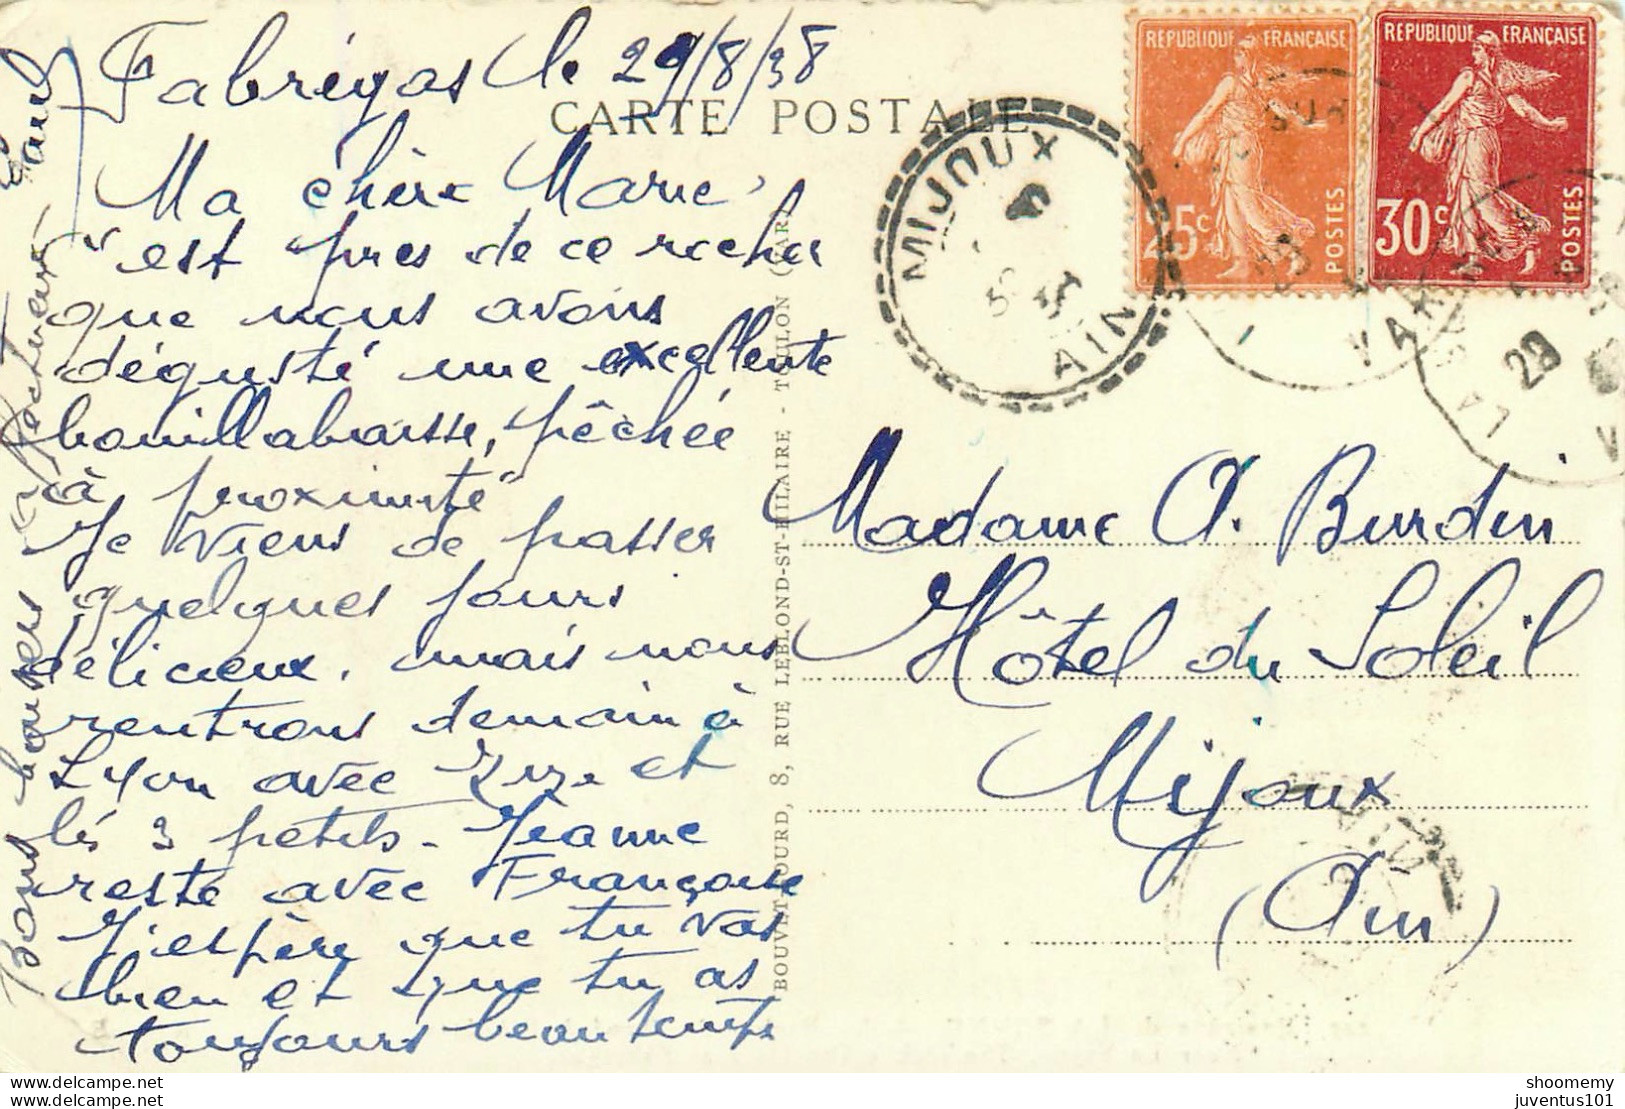 Fabrégas le 29/8/38
CARTE POSTALE
Ma chère Marie,
"est près de ce rocher
que nous avons
dégusté une excellente
bouillabaisse, pêchée
à proximité"
Je viens de passer
quelques jours
délicieux, mais nous
rentrons demain à
Lyon avec et
les 3 petits. Jeanne
reste avec Françoise
J'espère que tu vas
bien et que tu as
toujours beau temps
Bons baisers
BOUVET-JOURD, 8, RUE LEBLOND-ST-HILAIRE - TOULON (VAR)
REPUBLIQUE FRANÇAISE
25c
POSTES
REPUBLIQUE FRANÇAISE
30c
POSTES
MIJOUX
AIN
SUR
VAR
LA
29
Madame A. Burdin
Hôtel du Soleil
Mijoux
(Ain)
delcampe.net
shoomemy
juventus101